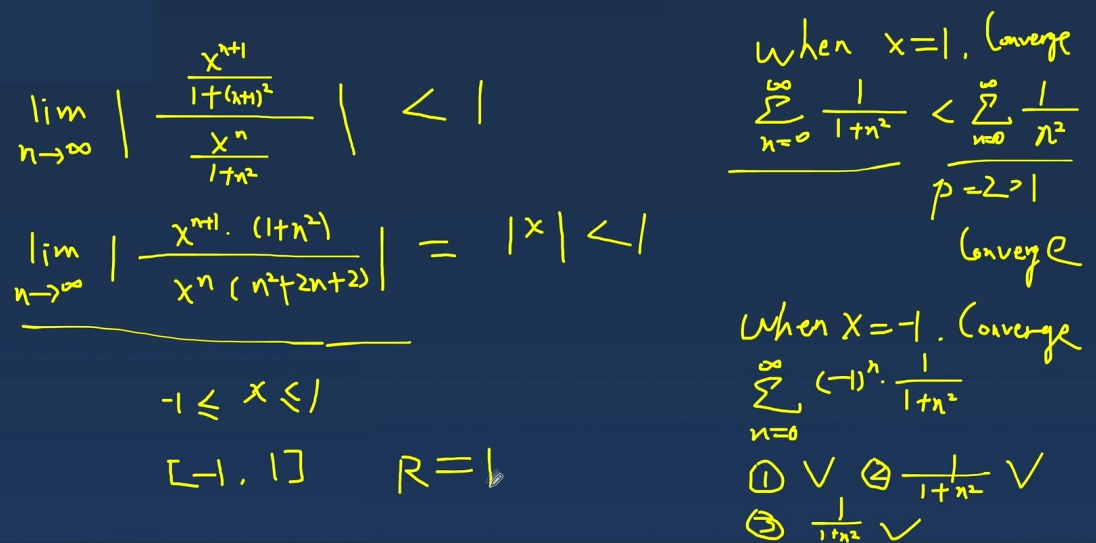 lim n→∞ | (x^(n+1) / (1+(n+1)²)) / (x^n / (1+n²)) | < 1
lim n→∞ | x^(n+1) · (1+n²) / (x^n (n²+2n+2)) | = |x| < 1
-1 ≤ x ≤ 1
[-1, 1] R=1
When x=1. Converge
∑_{n=0}^{∞} 1/(1+n²) < ∑_{n=0}^{∞} 1/n²
p=2>1
Converge
When x=-1. Converge
∑_{n=0}^{∞} (-1)^n · 1/(1+n²)
① √ ② 1/(1+n²) √
③ 1/(1+n²) √